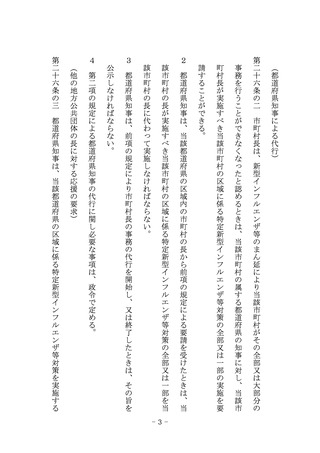 （都道府県知事による代行）
第二十六条の二　市町村長は、新型インフルエンザ等のまん延により当該市町村がその全部又は大部分の
事務を行うことができなくなったと認めるときは、当該市町村の属する都道府県の知事に対し、当該市
町村長が実施すべき当該市町村の区域に係る特定新型インフルエンザ等対策の全部又は一部の実施を要
請することができる。
２　都道府県知事は、当該都道府県の区域内の市町村の長から前項の規定による要請を受けたときは、当
該市町村の長が実施すべき当該市町村の区域に係る特定新型インフルエンザ等対策の全部又は一部を当
該市町村の長に代わって実施しなければならない。
３　都道府県知事は、前項の規定により市町村長の事務の代行を開始し、又は終了したときは、その旨を
公示しなければならない。
４　第二項の規定による都道府県知事の代行に関し必要な事項は、政令で定める。
（他の地方公共団体の長に対する応援の要求）
第二十六条の三　都道府県知事は、当該都道府県の区域に係る特定新型インフルエンザ等対策を実施する
- 3 -